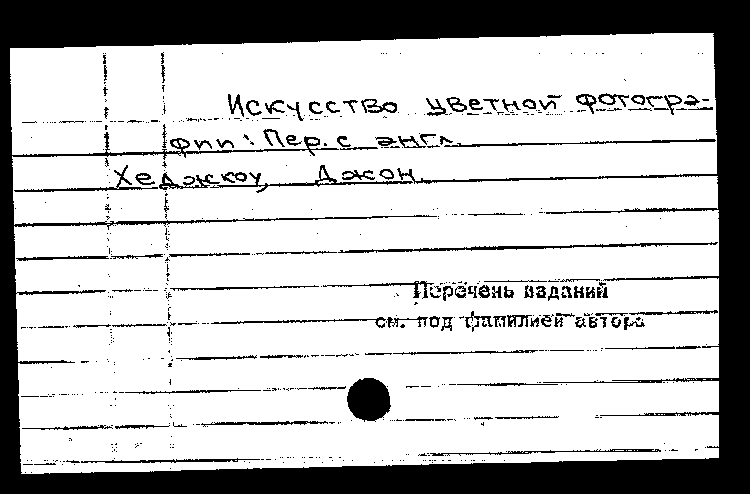 Искусство цветной фотогра-
фии: Пер. с англ.
Хеджкоу, Джон.
Перечень изданий
см. под фамилией автора